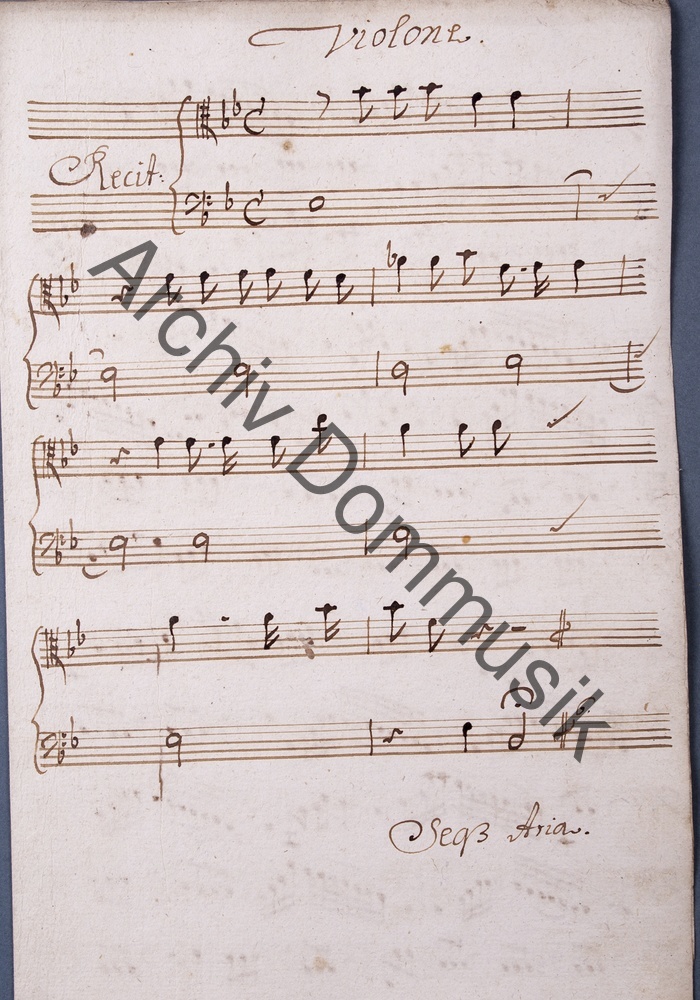 Violone.
Recit:
Archiv Dommusik
Seqß Aria.